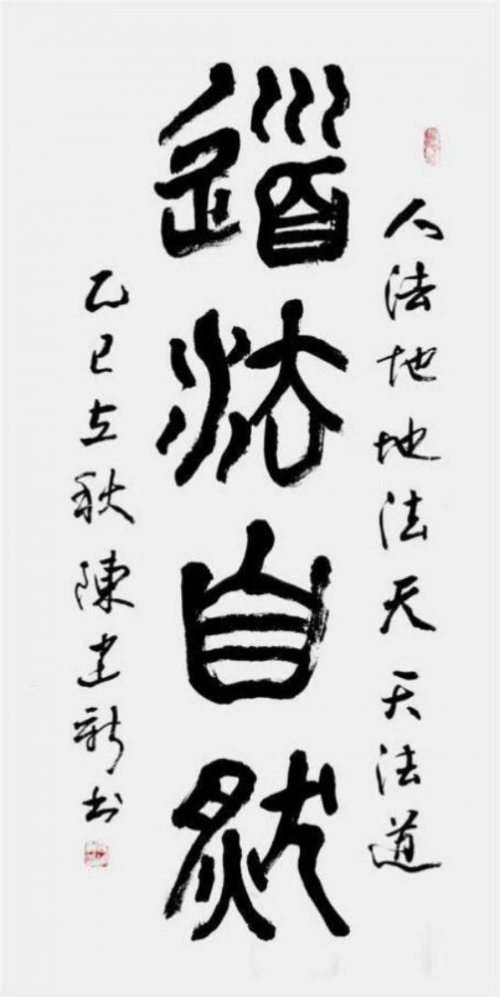 人法地地法天天法道
道法自然
乙巳立秋陳建新书